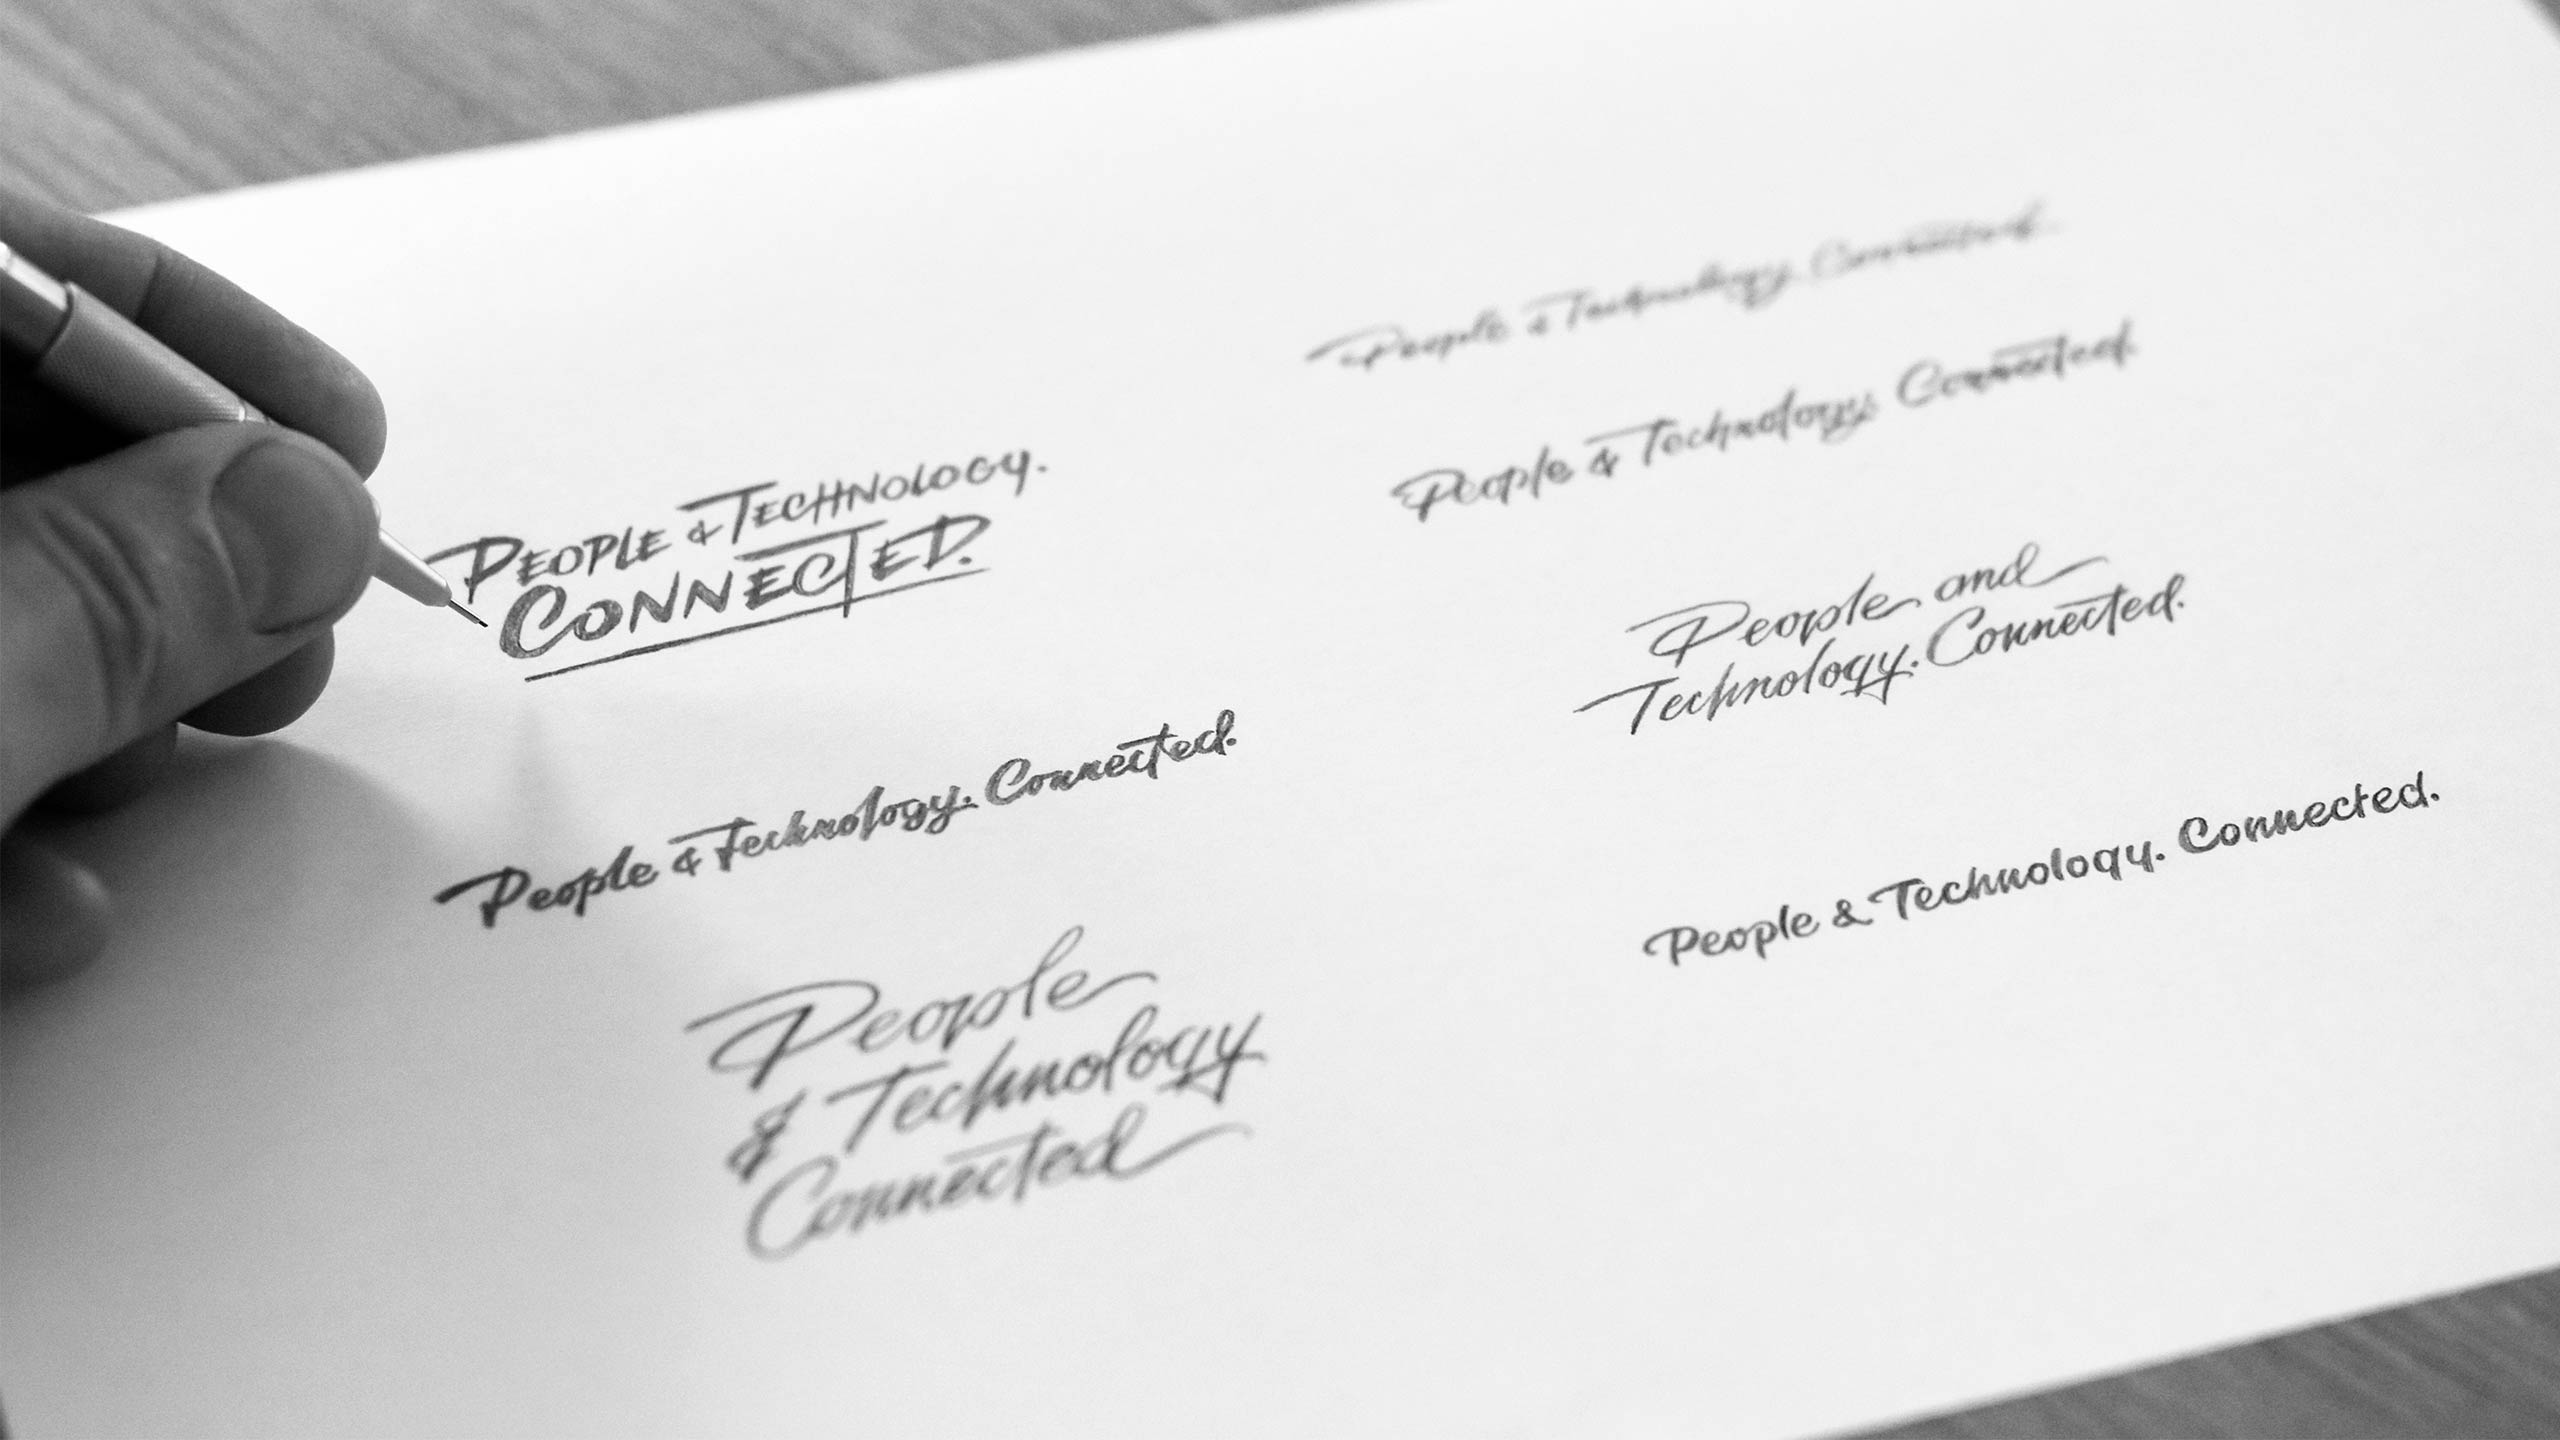 PEOPLE & TECHNOLOGY.
CONNECTED.
People & Technology. Connected.
People
& Technology
Connected
People & Technology. Connected.
People & Technology. Connected.
People and
Technology. Connected.
People & Technology. Connected.